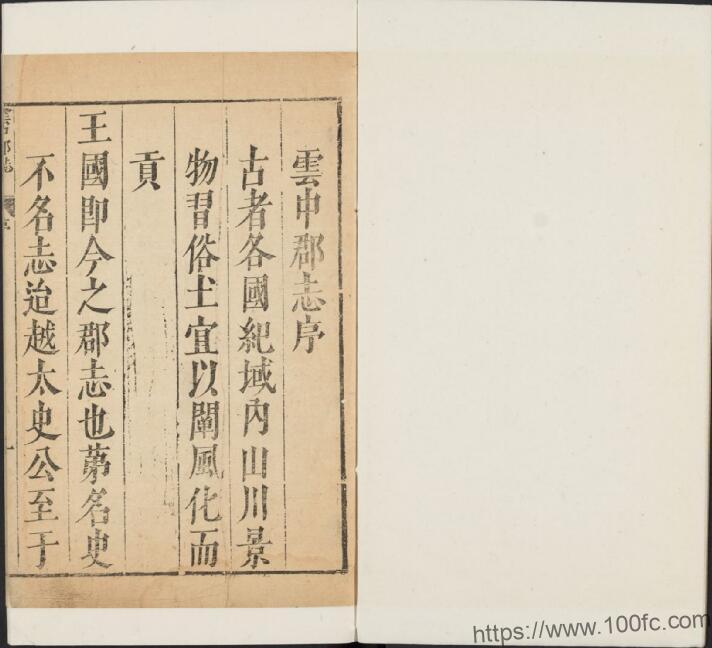 雲中郡志序
古者各國紀域內山川景
物習俗土宜以闡風化而
貢
王國即今之郡志也苐名史
不名志迨越太史公至于
https://www.100fc.com